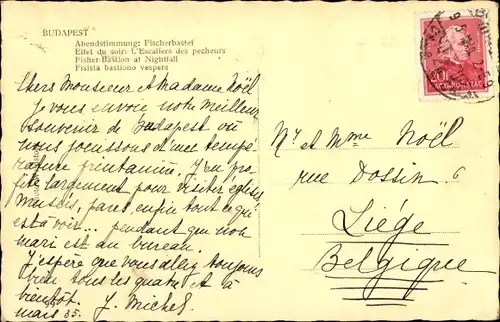 BUDAPEST
Abendstimmung: Fischerbastei
Effet du soir: L'Escaliers des pecheurs
Fisher-Bastion at Nightfall
Fisista bastiono vespere
20f
MAGYARORSZÁG
Chers Monsieur et Madame Noël
Je vous envoie notre meilleur
souvenir de Budapest où
nous jouissons d'une tempé-
rature printanière. J'en pro-
fite largement pour visiter églises
musées, parcs, enfin tout ce qui
est à voir... pendant que mon
mari est au bureau.
J'espère que vous allez toujours
bien tous les quatre et à
bientôt. J. Michel.
mars 35.
Mr et Mme Noël
rue Dossin 6
Liége
Belgique